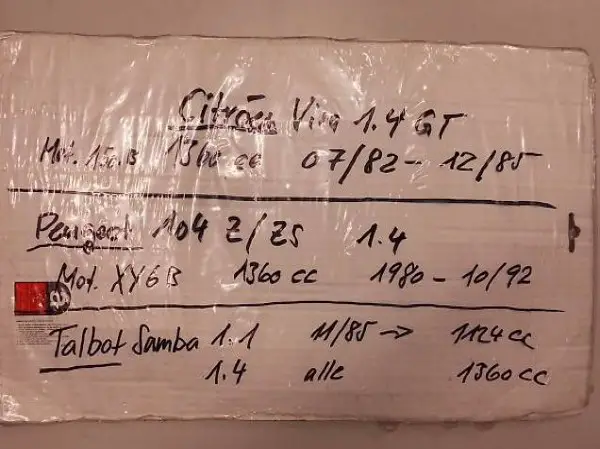 Citroën Visa 1.4 GT
Mot. 150.B 1360 cc 07/82 - 12/85
Peugeot 104 Z/ZS 1.4
Mot. XY6B 1360 cc 1980 - 10/92
Talbot Samba 1.1 11/85 → 1124 cc
1.4 alle 1360 cc